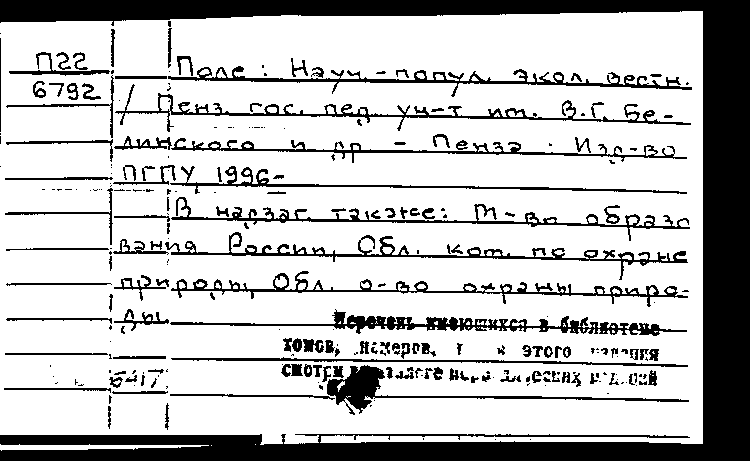 П22
6792
Поле : Науч.-попул. экол. вестн.
/ Пенз. гос. пед. ун-т им. В.Г. Бе-
линского и др. - Пенза : Изд-во
ПГПУ, 1996-
В надзаг. также: М-во образо
вания России, Обл. ком. по охране
природы, Обл. о-во охраны приро-
ды.
Перечень имеющихся в библиотеке
томов, номеров, этого издания
смотри в каталоге изданий
6417